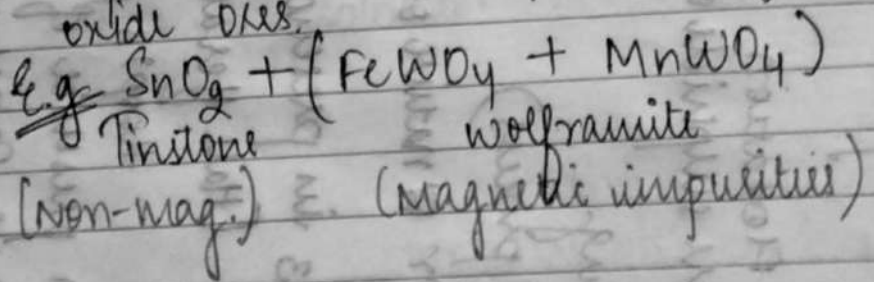 oxide ores.
E.g. SnO2 + (FeWO4 + MnWO4)
Tinstone wolframite
(Non-mag.) (Magnetic impurities)